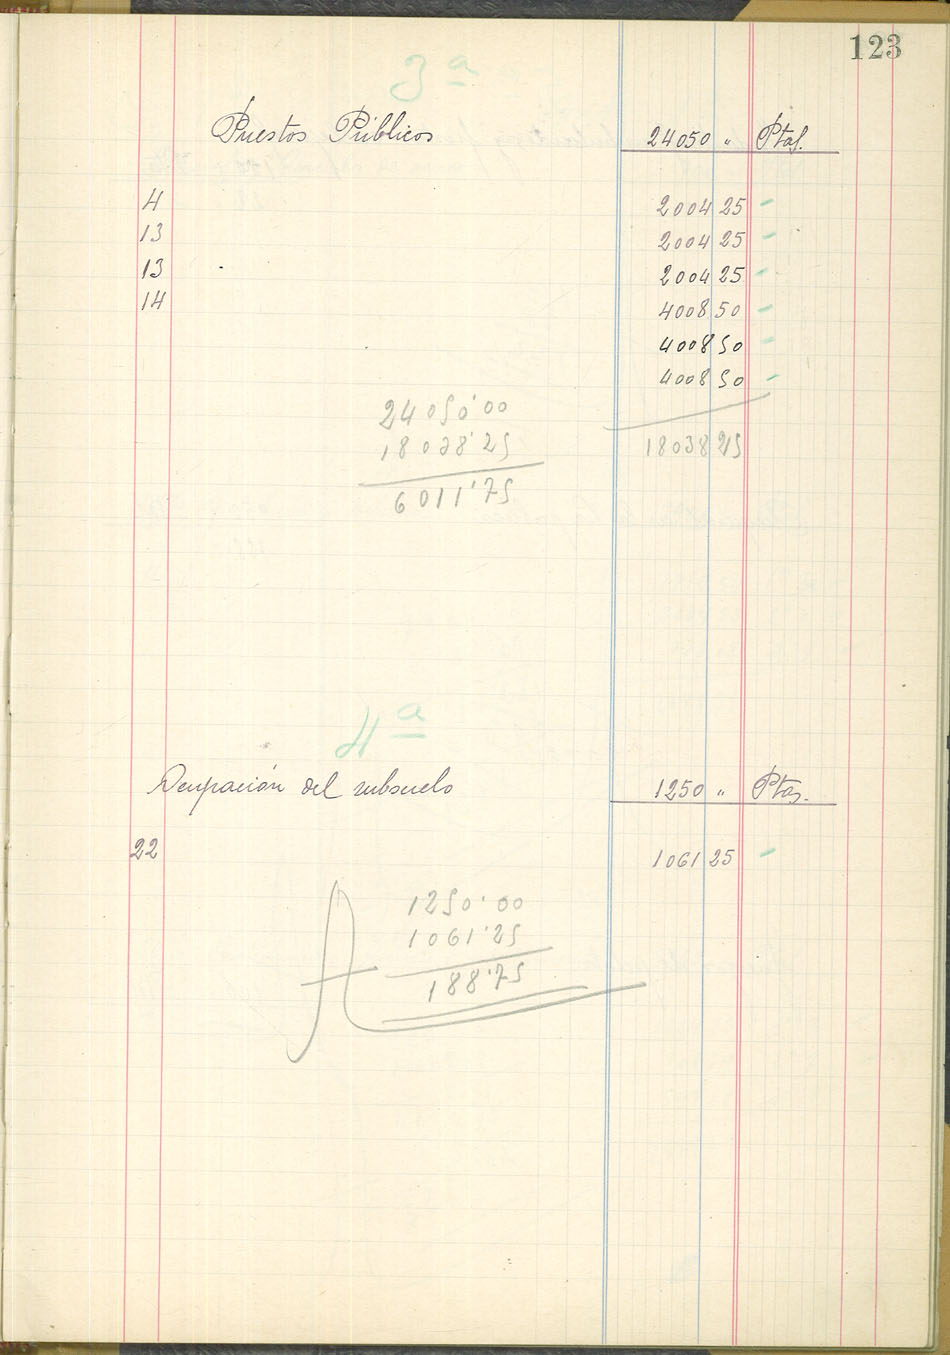 123
3ª
Puestos Públicos 24050 " Ptas.
4 2004 25 -
13 2004 25 -
13 2004 25 -
14 4008 50 -
4008 50 -
4008 50 -
24050'00
18038'25 18038 25
6011'75
4ª
Ocupación del subsuelo 1250 " Ptas.
22 1061 25 -
1250'00
1061'25
188'75